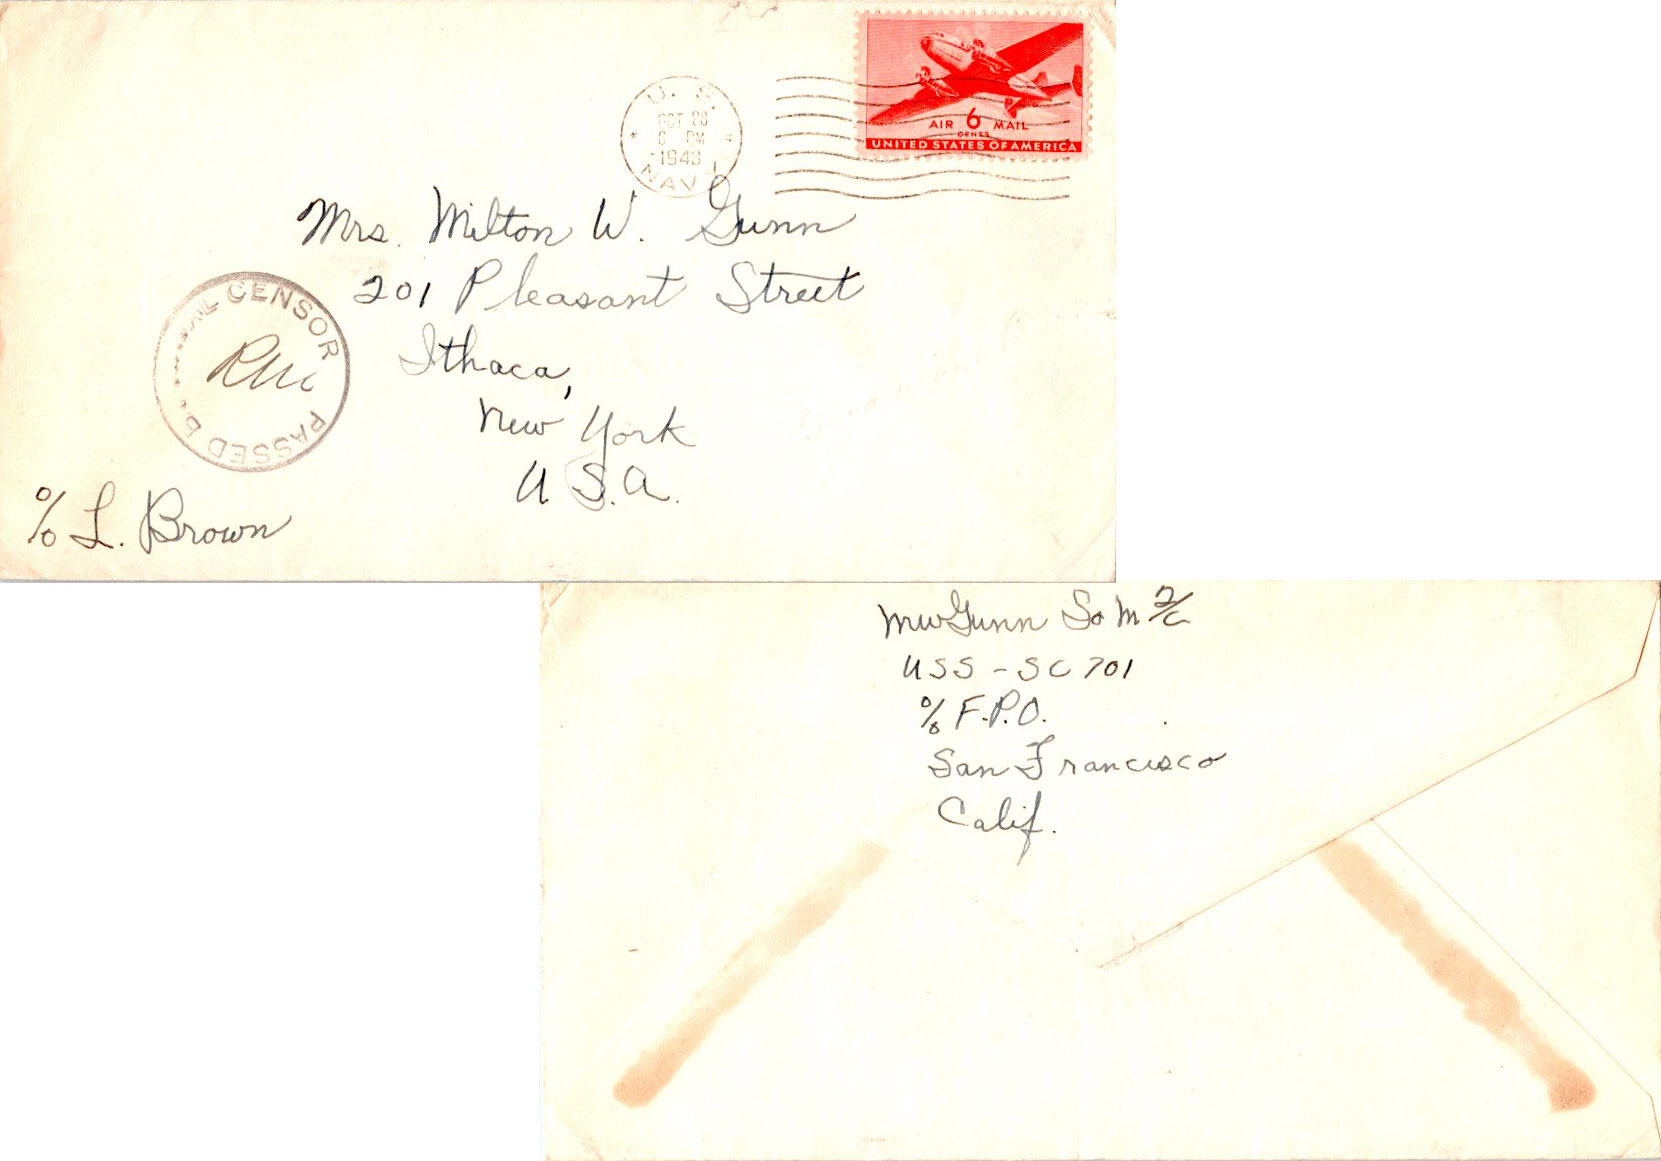 U. S.
OCT 28
6 PM
1943
NAVY
AIR 6 MAIL
CENTS
UNITED STATES OF AMERICA
Mrs. Milton W. Gunn
201 Pleasant Street
Ithaca,
New York
U.S.A.
PASSED BY NAVAL CENSOR
% L. Brown
MWGunn SoM 2/c
USS - SC 701
% F.P.O.
San Francisco
Calif.